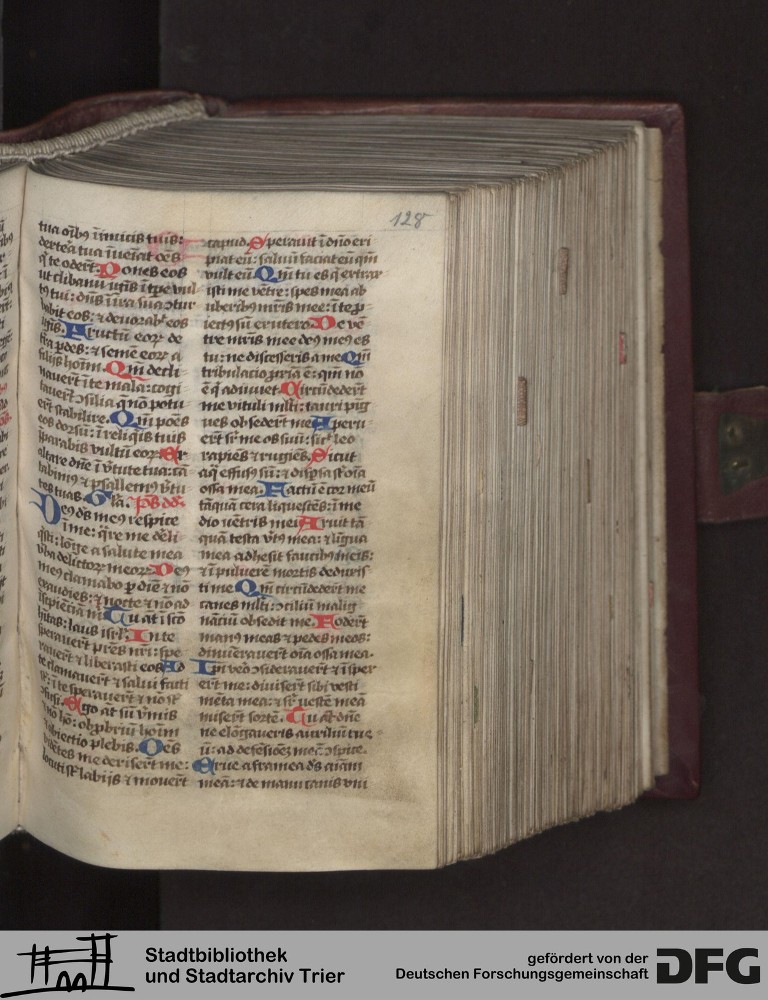 128
tua oib9 inimicis tuis:
dert̾a tua inueiat oēs
q̇ te odert̄. Pones eos
ut clibanū ignis ī tp̄e vul
t9 tui: dn̄s ī ira sua ɔtur
babit eos: ⁊ deuorab̄t eos
ignis. Fructū eoꝝ de
t̄ra p̄des: ⁊ semē eoꝝ a
filijs hoīm. Qm̄ decli
nauer̄t ī te mala: cogi
tauer̄t ɔsilia q̄ nō potu
er̄t stabilire. Qm̄ pōes
eos dorsū: ī reliq̇is tuis
p̄parabis vultū eoꝝ. Ex
altare dn̄e ī v̾tute tua: cā
tabim9 ⁊ psallem9 v̾tu
tes tuas. Gl̄a. p̄s dd̄.
De9 de9 me9 respice
ī me: q̄re me deli
q̇sti: lōge a salute mea
v̾ba delictoꝝ meoꝝ. De9
me9 clamabo p̄ diē ⁊ nō
exaudies: ⁊ nocte ⁊ nō ad
īsipiētiā m̄. Tu at̄ ī scō
hitas: laus isrl̄. In te
sperauer̄t pr̄es nr̄i: spe
rauer̄t ⁊ liberasti eos. Ad
te clamauer̄t ⁊ salui facti
s̄t: ī te sperauer̄t ⁊ nō s̄t
ɔfusi. Ego at̄ sū v̾mis
⁊ nō hō: obp̄briū hoīm
⁊ abiectio plebis. Oēs
vidētes me deriser̄t me:
locuti s̄t labijs ⁊ mouer̄t
caput. Sperauit ī dn̄o eri
piat eū: saluū faciat eū qm̄
vult eū. Qm̄ tu es q̇ extrax
isti me vētre: spes mea ab
uberib9 mr̄is mee: ī te p̄
iect9 sū ex utero. De vē
tre mr̄is mee de9 me9 es
tu: ne discesseris a me. Qm̄
tribulacio p̄xia ē: qm̄ nō
ē q̇ adiuuet. Circūdedert̄
me vituli ml̄ti: tauri pig
ues obseder̄t me. Aperu
er̄t sr̄ me os suū: sic̄ leo
rapiēs ⁊ rugiēs. Sicut
aq̄ effus9 sū: ⁊ disp̄sa s̄t oīa
ossa mea. Factū ē cor meū
tāquā cera liquescēs: ī me
dio vētris mei. Aruit tā
quā testa v̾t9 mea: ⁊ ligua
mea adhesit faucib9 meis:
⁊ ī puluerē mortis deduxis
ti me. Qm̄ circūdeder̄t me
canes ml̄ti: ɔciliū malig
nāciū obsedit me. Foder̄t
man9 meas ⁊ pedes meos:
dinūerauer̄t oīa ossa mea.
Ipi vero ɔsiderauer̄t ⁊ īsper
er̄t me: diuiser̄t sibi vesti
mēta mea: ⁊ sr̄ vestē meā
miser̄t sortē. Tu at̄ dn̄e
ne elōgaueris auxiliū tuū
ad defēsioēꝫ meā ɔspice.
Erue a framea ds̄ aīam
meā: ⁊ de manu canis vni
Stadtbibliothek
und Stadtarchiv Trier
gefördert von der
Deutschen Forschungsgemeinschaft
DFG